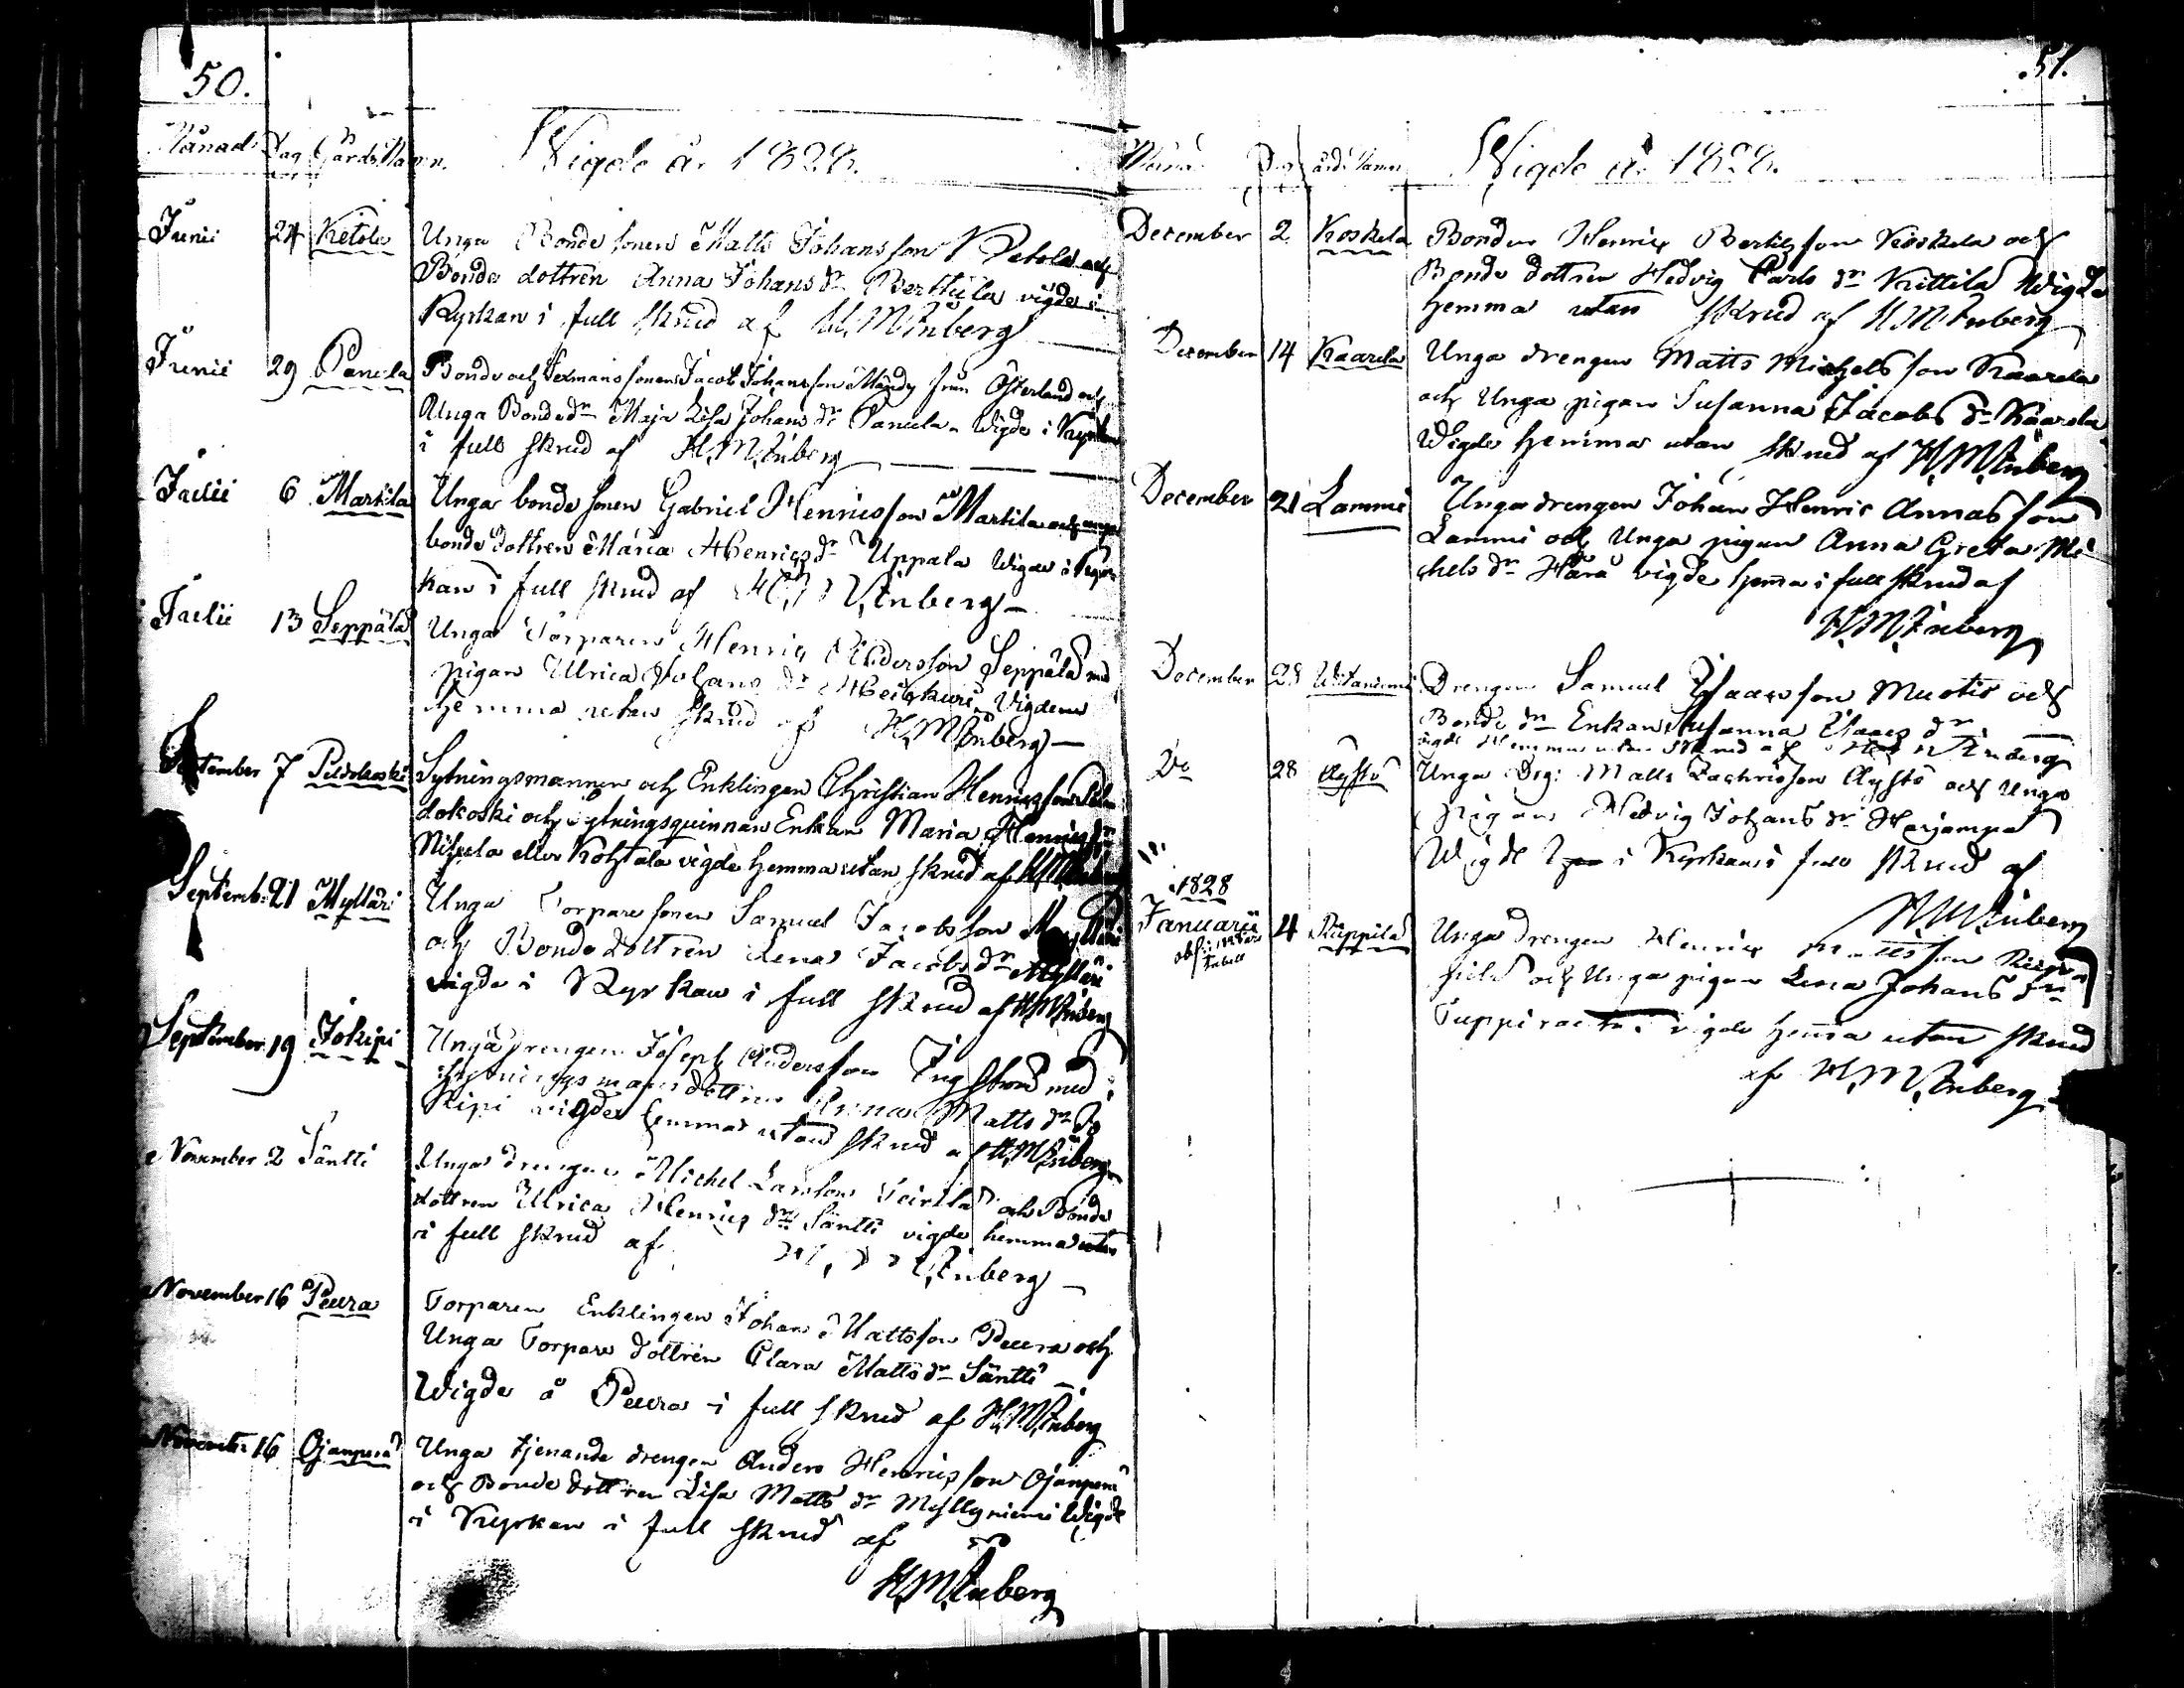 50.
Månad Dag Gårds Namn. Wigde år 1828.
Junii 24 Ketola Unga Bonde sonen Matts Johansson Ketola och
Bonde dottren Anna Johans dr Berttula vigde i
Kyrkan i full skrud af H. M. Enberg
Junii 29 Panula Bonde och sonen Jacob Johansson från Österland och
Unga Bonde dr Maja Lisa Johans dr Panula. Wigde i Kyrkan
i full skrud af H. M. Enberg
Julii 6 Martila Unga bonde sonen Gabriel Henricsson Martila och unga
bonde dottren Maria Henrics dr Uppala Wigde i Kyr
kan i full skrud af H. M. Enberg
Julii 13 Seppälä Unga Torparen Henric Andersson Seppälä med
pigan Ulrica Johans dr Vigdene
hemma utan skrud af H. M. Enberg
September 7 Peldokoski Sytningsmannen och Enklingen Christian Henricsson Pel
dokoski och sytningsquinnan Enkan Maria Henrics dr
eller Kohtala vigde hemma utan skrud af H. M. Enberg
Septemb. 21 Mylläri Unga Torpare sonen Samuel Jacobsson Mylläri
och Bonde dottren Lena Jacobs dr Mylläri
vigde i Kyrkan i full skrud af H. M. Enberg
September 19 Jokipi Unga drengen Joseph Andersson med
Sytningsmans dottren Anna Matts dr Jo
kipi vigde hemma utan skrud af H. M. Enberg
November 2 Säntti Unga drengen Michel Larsson och Bonde
dottren Ulrica Henrics dr Säntti vigde hemma utan
i full skrud af H. M. Enberg
November 16 Peura Torparen Enklingen Johan Mattsson Peura och
Unga Torpare dottren Clara Matts dr Säntti
Wigde å Peura i full skrud af H. M. Enberg
November 16 Ojanperä Unga tjenande drengen Anders Henricsson Ojanperä
och Bonde dottren Lisa Matts dr Myllyniemi Wigde
i Kyrkan i full skrud af
H. M. Enberg
51.
Månad Dag Gårds Namn Wigde år 1828.
December 2 Koskela Bonden Henric Bertilsson Koskela och
Bonde dottren Hedvig Carls dr Kittilä Wigde
hemma utan skrud af H. M. Enberg
December 14 Kaarela Unga drengen Matts Michelsson Kaarela
och Unga pigan Susanna Jacobs dr Kaarela
Wigde hemma utan skrud af H. M. Enberg
December 21 Lammi Unga drengen Johan Henric Annasson
Lammi och Unga pigan Anna Greta Mi
chels dr Harå vigde hema i full skrud af
H. M. Enberg
December 28 Drengen Samuel Isaacsson och
Bonde dr Enkan Susanna Isaacs dr
vigde hemma utan skrud af H. M. Enberg
Do 28 Äystö Unga Drg: Matts Zachrisson Äystö och Unga
pigan Hedvig Johans dr Harjanpä
Wigde i Kyrkan i full skrud af
H. M. Enberg
1828
Januarii 4 Unga drengen Henric Mattsson
och Unga pigan Lena Johans dr
vigde hema utan skrud
af H. M. Enberg